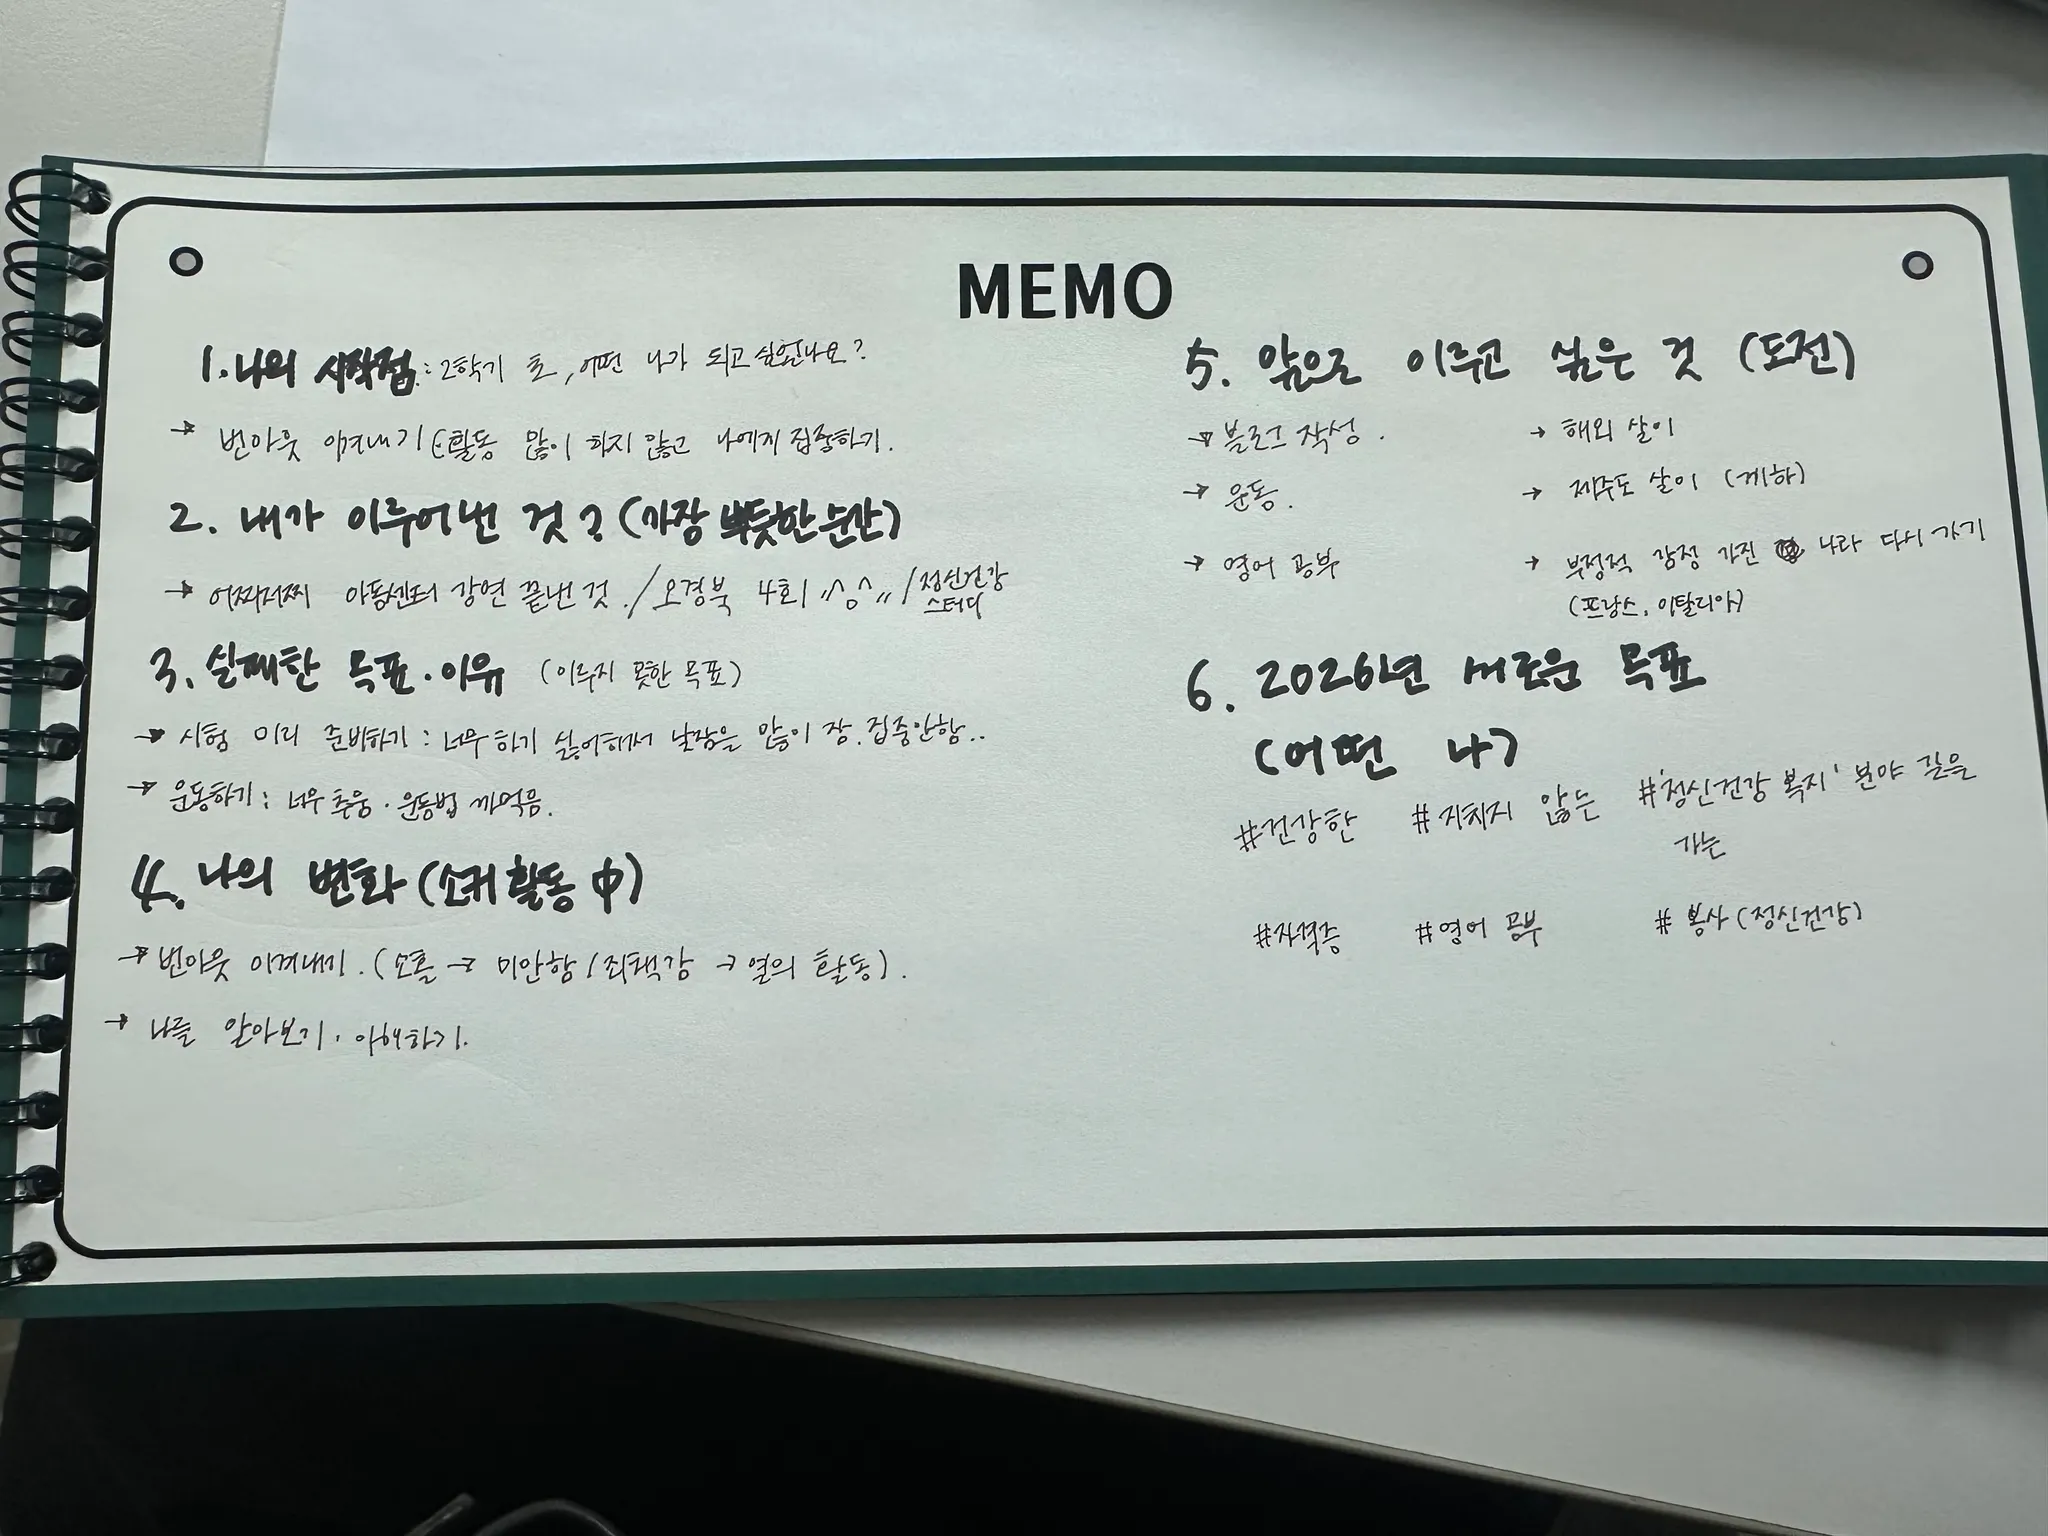 MEMO
1. 나의 시작점 : 2학기 초, 어떤 나가 되고 싶었나요?
→ 번아웃 이겨내기 (활동 많이 하지 않고 나에게 집중하기.
2. 내가 이루어낸 것? (가장 뿌듯한 순간)
→ 어찌저찌 아동센터 강연 끝낸 것. / 오경북 4회 〃^o^〃 / 정신건강
스터디
3. 실패한 목표·이유 (이루지 못한 목표)
→ 시험 미리 준비하기 : 너무 하기 싫어해서 낮잠을 많이 잠. 집중안함..
→ 운동하기 : 너무 추움 · 운동법 까먹음.
4. 나의 변화 (소키 활동 中)
→ 번아웃 이겨내기. (소홀 → 미안함/죄책감 → 열의 활동).
→ 나를 알아보기 · 이해하기.
5. 앞으로 이루고 싶은 것 (도전)
→ 블로그 작성.
→ 해외 살이
→ 운동.
→ 제주도 살이 (게하)
→ 영어 공부
→ 부정적 감정 가진 나라 다시 가기
(프랑스, 이탈리아)
6. 2026년 새로운 목표
(어떤 나)
#건강한 #지치지 않는 #'정신건강 복지' 분야 길을
가는
#자격증 #영어 공부 #봉사(정신건강)